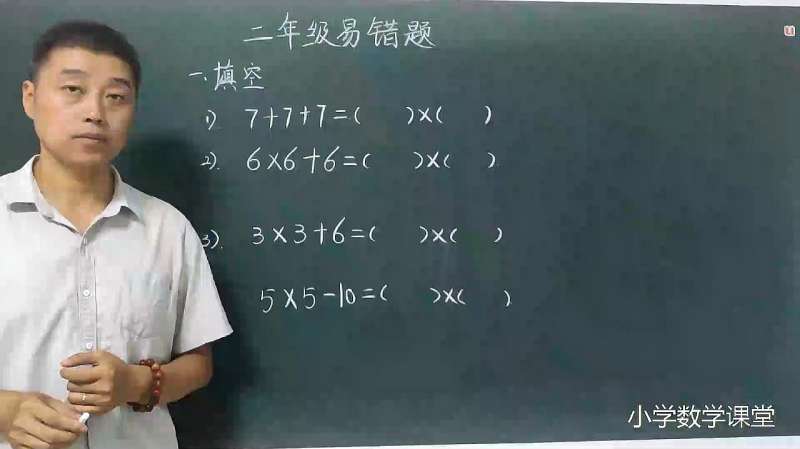 二年级易错题
一、填空
1). 7+7+7=( )×( )
2). 6×6+6=( )×( )
3). 3×3+6=( )×( )
5×5-10=( )×( )
小学数学课堂